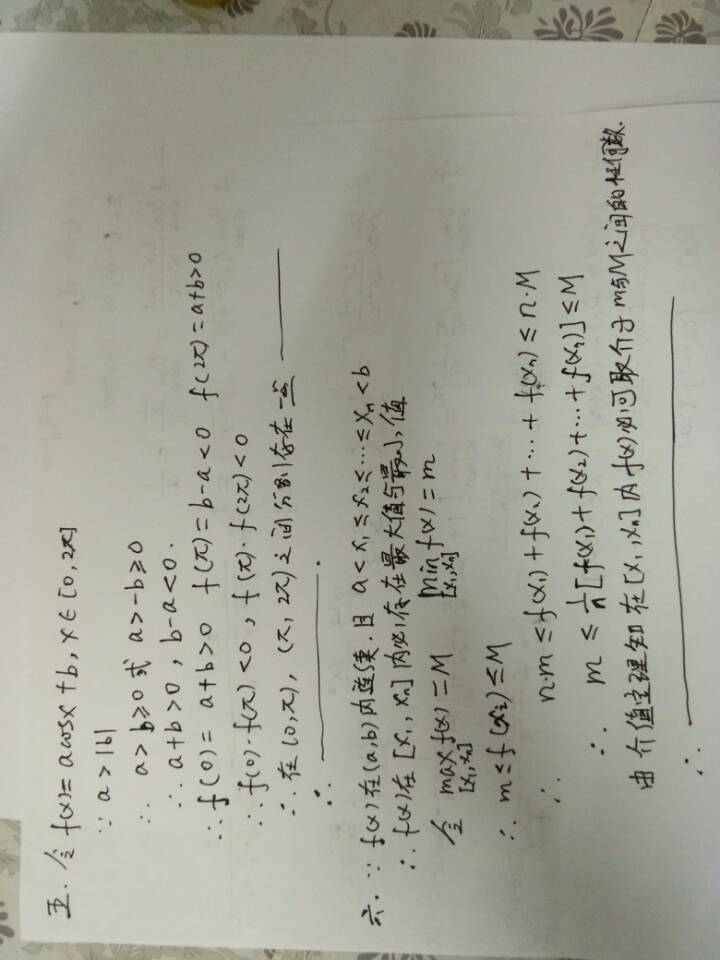 五. 令 f(x)=acosx+b, x∈[0,2π]
∵ a>|b|
∴ a>b≥0 或 a>-b≥0
∴ a+b>0, b-a<0.
∴ f(0)=a+b>0 f(π)=b-a<0 f(2π)=a+b>0
∴ f(0)·f(π)<0, f(π)·f(2π)<0
∴ 在(0,π), (π,2π)之间分别存在一点
∴
六. ∵ f(x)在(a,b)内连续.且 a<x₁≤x₂≤…≤xₙ<b
∴ f(x)在[x₁,xₙ]内必存在最大值与最小值
令 max f(x)=M min f(x)=m
[x₁,xₙ] [x₁,xₙ]
∴ m≤f(xᵢ)≤M
∴ n·m≤f(x₁)+f(x₂)+…+f(xₙ)≤n·M
∴ m≤1/n[f(x₁)+f(x₂)+…+f(xₙ)]≤M
由介值定理知在[x₁,xₙ]内f(x)必可取介于m与M之间的任何数.
∴